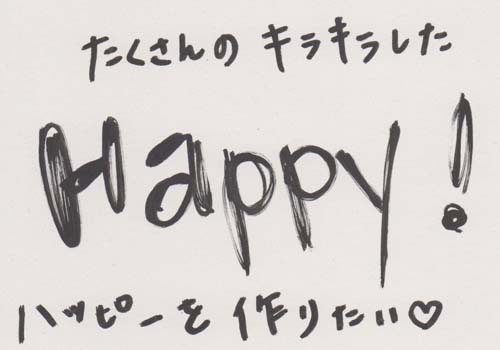 たくさんの キラキラした
Happy!
ハッピーを 作りたい♡